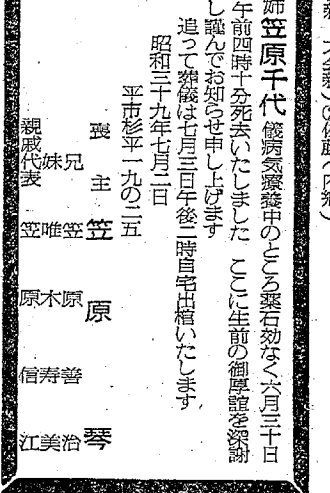 姉笠原千代儀病気療養中のところ薬石効なく六月三十日
午前四時十分死去いたしました ここに生前の御厚誼を深謝
し謹んでお知らせ申し上げます
追って葬儀は七月三日午後二時自宅出棺いたします
昭和三十九年七月二日
平市杉平一九の二五
喪主 笠原琴
兄 笠原善治
妹 唯木寿美
親戚代表 笠原信江